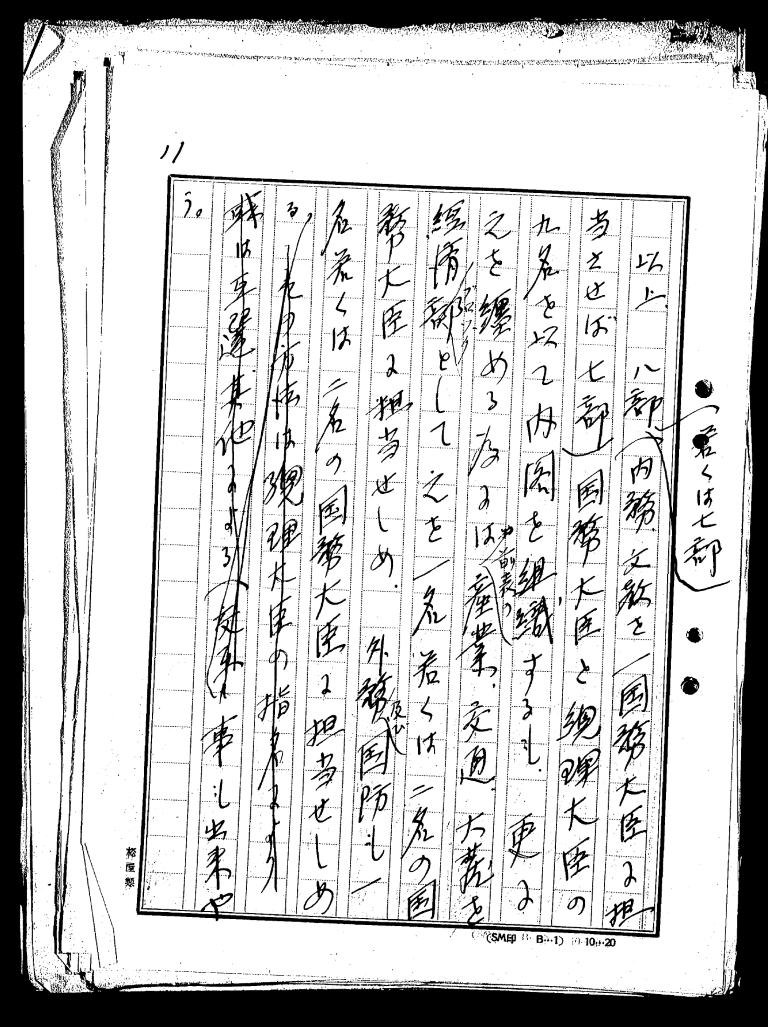 11
以上、八部(若くは七部)(内務、文教を一国務大臣に担
当させせば七部)国務大臣と総理大臣の
九名を以て内閣を組織するも、更に
之を纏める為には 前表の 産業、交通、大蔵を
経済部(ブロック)として之を一名若くは二名の国
務大臣に担当せしめ、外務及び国防も一
名若くは二名の国務大臣に担当せしめ
る、その方法は総理大臣の指名により
或は互選其他による 事も出来や
う。
(SM印 B-1) 10-20